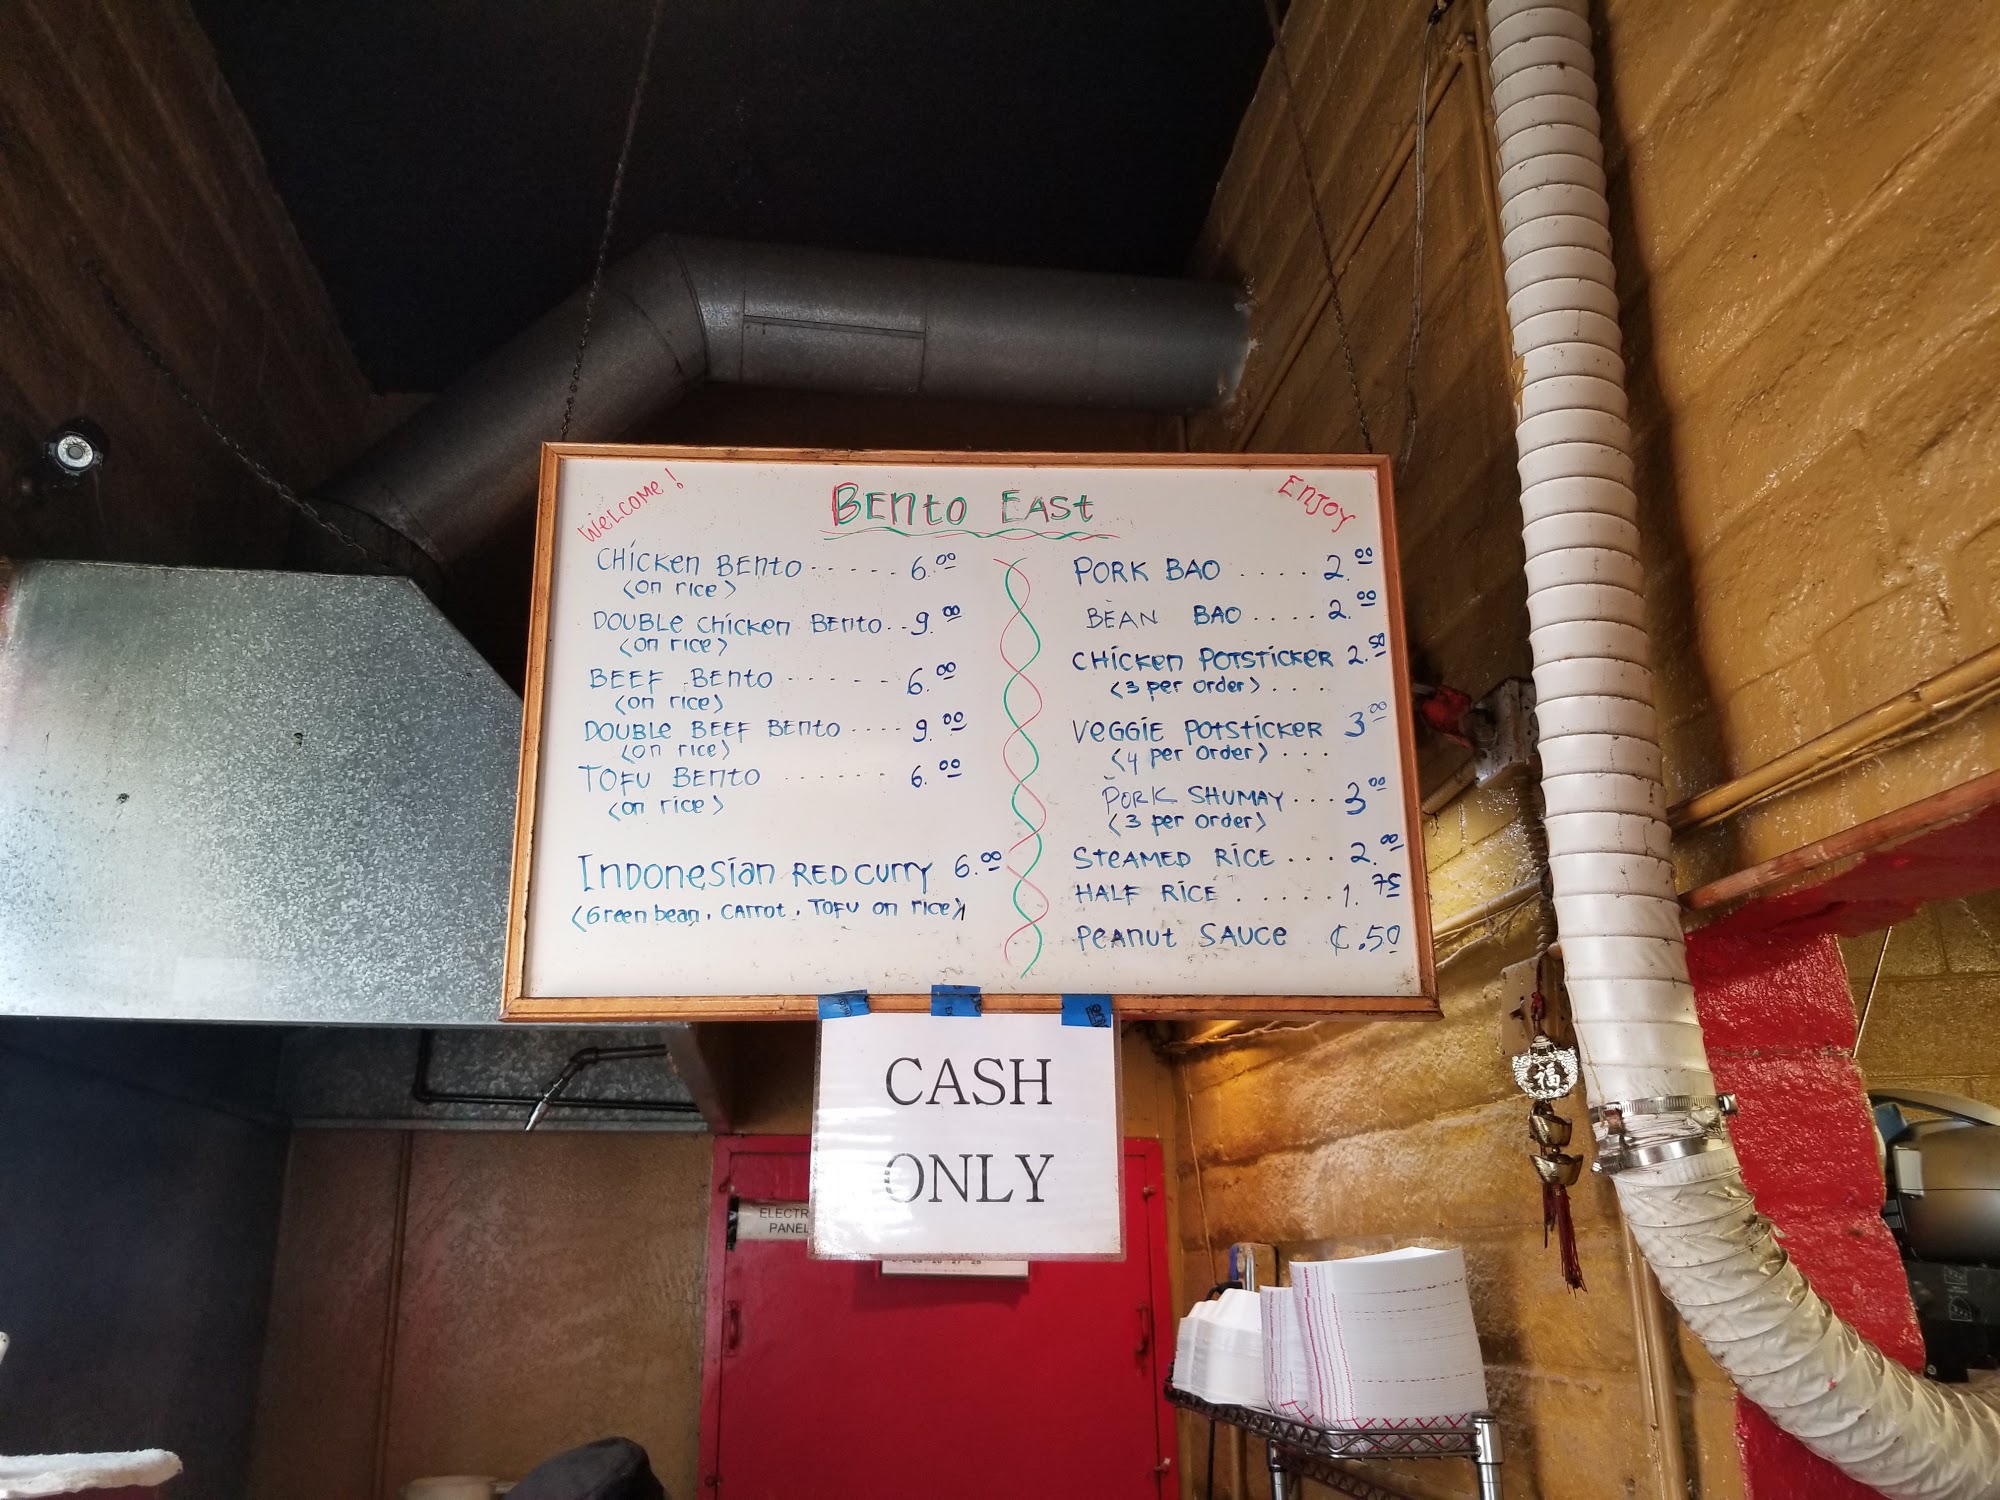 Welcome!
Bento East
Enjoy
Chicken Bento ..... 6.00
(on rice)
Double Chicken Bento .. 9.00
(on rice)
Beef Bento ...... 6.00
(on rice)
Double Beef Bento .... 9.00
(on rice)
Tofu Bento ...... 6.00
(on rice)
Indonesian Red Curry 6.00
(Green bean, Carrot, Tofu on rice)
Pork Bao .... 2.00
Bean Bao .... 2.00
Chicken Potsticker 2.50
(3 per order) ....
Veggie Potsticker 3.00
(4 per order) ...
Pork Shumay ... 3.00
(3 per order)
Steamed Rice ... 2.00
Half Rice ..... 1.75
Peanut Sauce ¢.50
CASH
ONLY
ELECTR
PANEL
福